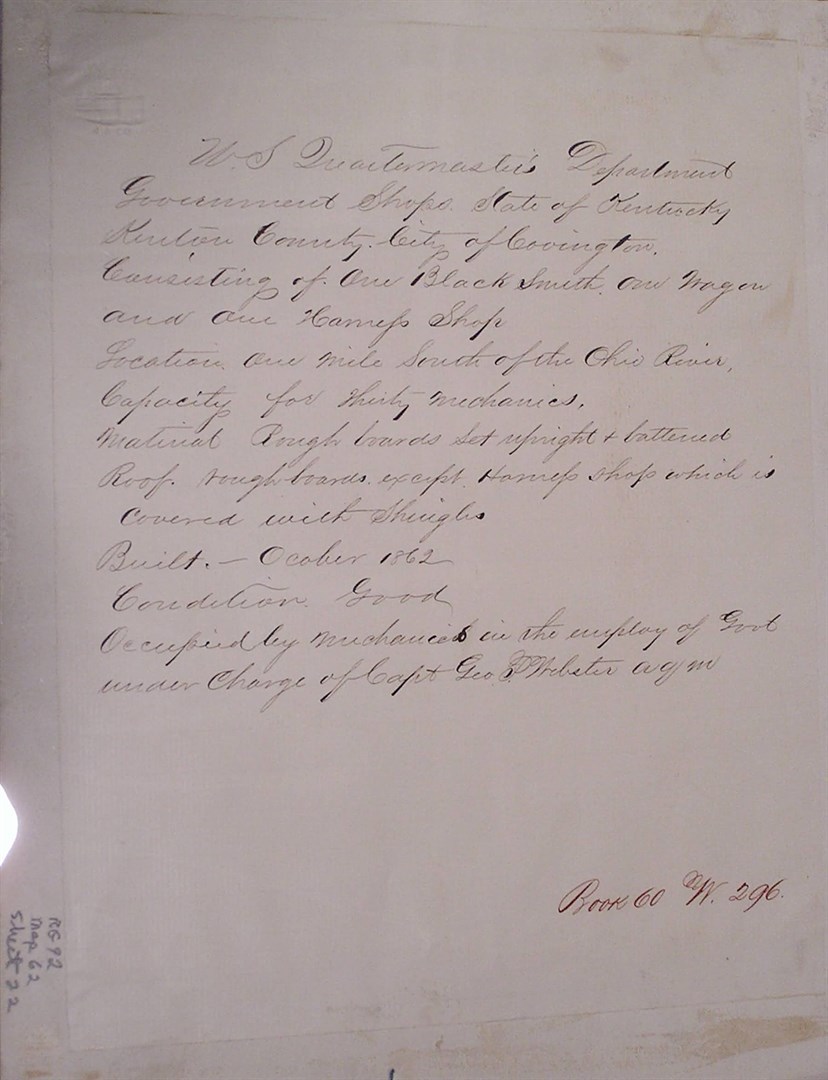 U. S Quartermaster's Department
Government Shops. State of Kentucky
Kenton County. City of Covington.
Consisting of. One Black Smith. One Wagon
and One Harness Shop
Location. One Mile South of the Ohio River,
Capacity for Thirty Mechanics.
Material Rough boards set upright + battened
Roof. rough boards. except. Harness shop which is
covered with Shingles
Built. — Ocober 1862
Condition. Good
Occupied by Mechanics in the employ of Govt
under Charge of Capt Geo Webster aqm
Book 60 W. 296.
RG 92
Map 62
Sheet 22